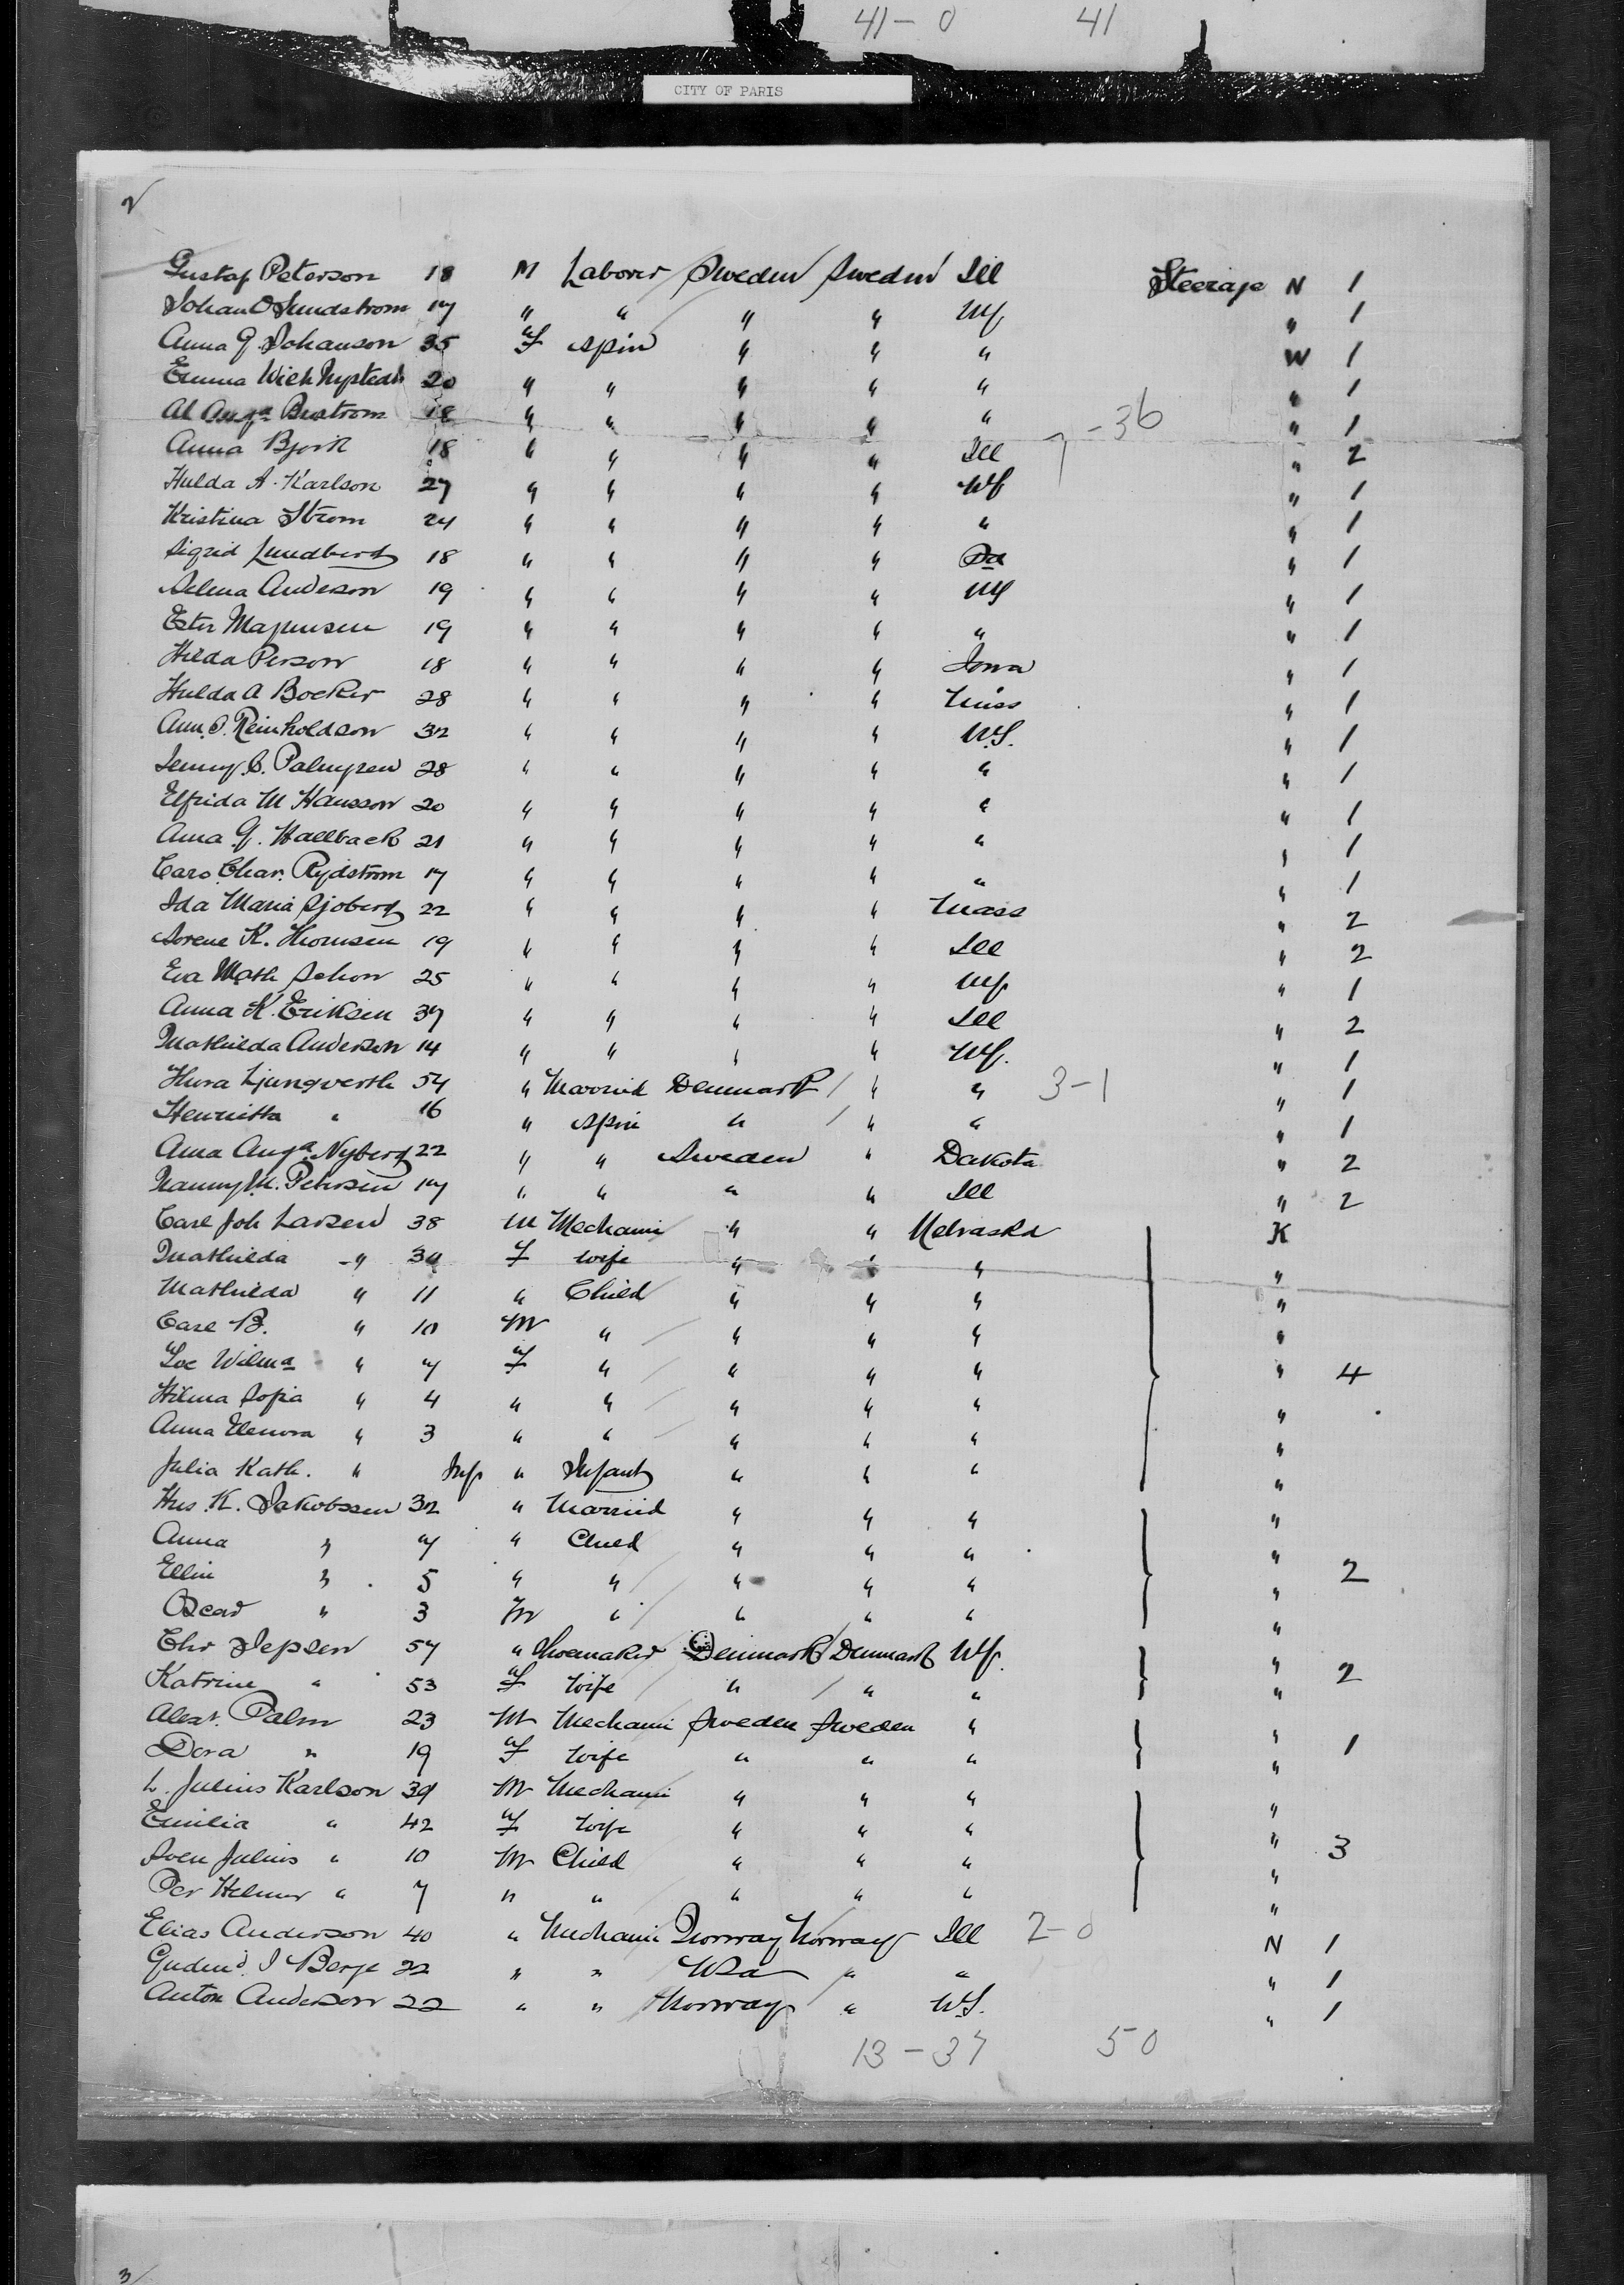 41-0 41
CITY OF PARIS
2
Gustaf Peterson 18 M Laborer Sweden Sweden Ill Steerage N 1
Johan O Sundstrom 17 " " " " NY " 1
Anna G. Johanson 35 F Spin " " " W 1
Emma Wich Nystedt 20 " " " " " " 1
Al Auga Bustrom 18 " " " " " " 1
7-36
Anna Bjork 18 " " " " Ill " 2
Hulda A. Karlson 27 " " " " NY " 1
Kristina Strom 24 " " " " " " 1
Sigrid Lundberg 18 " " " " Pa " 1
Selma Anderson 19 " " " " NY " 1
Ester Magnusen 19 " " " " " " 1
Hilda Person 18 " " " " Iowa " 1
Hulda A Bocker 28 " " " " Miss " 1
Ann. S. Reinholdson 32 " " " " N.Y. " 1
Jenny C. Palmgren 28 " " " " " " 1
Elfrida M Hansson 20 " " " " " " 1
Anna G. Hallback 21 " " " " " " 1
Caro Char. Rydstrom 17 " " " " " " 1
Ida Maria Sjoberg 22 " " " " Mass " 2
Sorene K. Thomsen 19 " " " " Ill " 2
Eva Math Schon 25 " " " " NY " 1
Anna K. Eriksen 37 " " " " Ill " 2
Mathilda Anderson 14 " " " " NY. " 1
Thura Ljungverth 57 " Married Denmark " " 3-1 " 1
Henrietta " 16 " Spin " " " " 1
Anna Auga. Nyberg 22 " " Sweden " Dakota " 2
Nanny M. Petersen 17 " " " " Ill " 2
Carl Joh Larsen 38 M Mechanic " " Nebraska K
Mathilda " 34 F Wife " " " "
Mathilda " 11 " Child " " " "
Carl B. " 10 M " " " " "
Loe Wilma " 7 F " " " " " 4
Hilma Sofia " 4 " " " " " "
Anna Elenora " 3 " " " " " "
Julia Kath. " Inf " Infant " " " "
Hus. K. Jakobssen 32 " Married " " " "
Anna " 7 " Child " " " "
Ellin " 5 " " " " " " 2
Oscar " 3 M " " " " "
Chr Jepsen 57 " Shoemaker Denmark Denmark NY. " 2
Katrine " 53 F Wife " " " "
Alexr. Palm 23 M Mechanic Sweden Sweden " " 1
Dora " 19 F Wife " " " "
L. Julius Karlson 39 M Mechanic " " " "
Emilia " 42 F Wife " " " " 3
Sven Julius " 10 M Child " " " "
Per Helmer " 7 " " " " " "
Elias Anderson 40 " Mechanic Norway Norway Ill 2-0 N 1
Gudmd. I Berge 22 " " USa " " " 1
Anton Anderson 22 " " Norway " N.Y. " 1
13-37 50
3